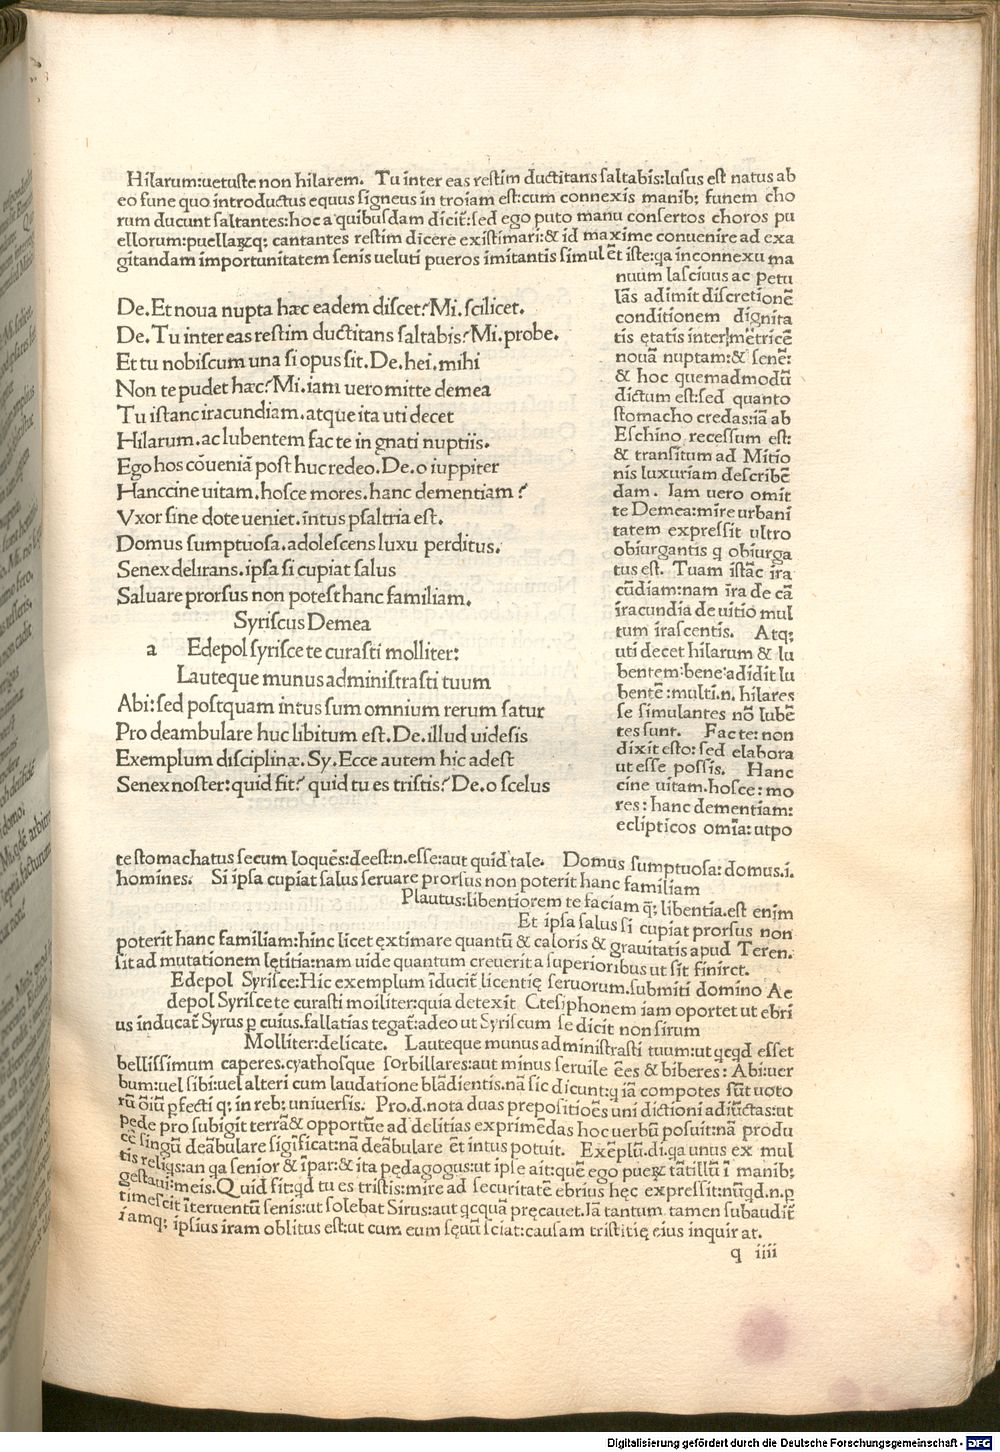 Hilarum:uetuste non hilarem. Tu inter eas restim ductitans saltabis:lusus est natus ab
eo fune quo introductus equus ligneus in troiam est:cum connexis manibꝫ funem cho
rum ducunt saltantes:hoc a quibusdam dicit̃:sed ego puto manu consertos choros pu
ellorum:puellaꝝqꝫ cantantes restim dicere existimari:& id maxime conuenire ad exa
gitandam importunitatem senis ueluti pueros imitantis simul et̃ iste:qa inconnexu ma
nuum lasciuus ac petu
lãs adimit discretionẽ
conditionem dignita
tis ętatis inter:metricẽ
nouã nuptam:& senẽ:
& hoc quemadmodũ
dictum est:sed quanto
stomacho credas:iã ab
Eschino recessum est:
& transitum ad Mitio
nis luxuriam describẽ
dam. Iam uero omit
te Demea:mire urbani
tatem expressit ultro
obiurgantis q obiurga
tus est. Tuam istãc ira
cũdiam:nam ĩra de cã
ĩracundia de uitio mul
tum irascentis. Atqꝫ
uti decet hilarum & lu
bentem:bene adidit lu
bentẽ:multi.n. hilares
se simulantes nõ lubẽ
tes sunt. Fac te: non
dixit esto: sed elabora
ut esse possis. Hanc
cine uitam.hosce: mo
res: hanc dementiam:
eclipticos omĩa: utpo
De. Et noua nupta hæc eadem discet? Mi. scilicet.
De. Tu inter eas restim ductitans saltabis? Mi. probe.
Et tu nobiscum una si opus sit. De. hei. mihi
Non te pudet hæc? Mi. iam uero mitte demea
Tu istanc iracundiam. atque ita uti decet
Hilarum. ac lubentem fac te in gnati nuptiis.
Ego hos cõueniã post huc redeo. De. o iuppiter
Hanccine uitam. hosce mores. hanc dementiam?
Vxor sine dote ueniet. intus psaltria est.
Domus sumptuosa. adolescens luxu perditus.
Senex delirans. ipsa si cupiat salus
Saluare prorsus non potest hanc familiam.
Syriscus Demea
a Edepol syrisce te curasti molliter:
Lauteque munus administrasti tuum
Abi: sed postquam intus sum omnium rerum satur
Prodeambulare huc libitum est. De. illud uidesis
Exemplum disciplinæ. Sy. Ecce autem hic adest
Senex noster: quid fit? quid tu es tristis? De. o scelus
te stomachatus secum loquẽs:deest:n.esse:aut quid tale. Domus sumptuosa: domus.i.
homines. Si ipsa cupiat salus seruare prorsus non poterit hanc familiam
Plautus:libentiorem te faciam q̃; libentia.est enim
Et ipsa salus si cupiat prorsus non
poterit hanc familiam:hinc licet ęxtimare quantũ & caloris & grauitatis apud Teren.
sit ad mutationem lętitia:nam uide quantum creuerit a superioribus ut sit finiret.
Edepol Syrisce:Hic exemplum ĩducit̃ licentię seruorum.submiti domino Ae
depol Syrisce te curasti moiliter:quia detexit Ctesiphonem iam oportet ut ebri
us inducat̃ Syrus ꝑ cuius.fallatias tegat̃:adeo ut Syriscum se dicit non sirum
Molliter:delicate. Lauteque munus administrasti tuum:ut qcqd esset
bellissimum caperes.cyathosque sorbillares:aut minus seruile ẽes & biberes: Abi:uer
bum:uel sibi:uel alteri cum laudatione blãdientis.nã sic dicunt:q iã compotes sũt uoto
rũ õiũ ꝑfecti qꝫ in rebꝫ uniuersis. Pro.d.nota duas prepositiões uni dictioni adiũctas:ut
pede pro subigit terrã& opportũe ad delitias exprimẽdas hoc uerbũ posuit:nã produ
cẽ singũ deãbulare sigĩficat:nã deãbulare et̃ intus potuit. Exẽplũ.di.qa unus ex mul
tis religs:an qa senior & ĩpar:& ita pędagogus:ut ipse ait:quẽ ego pueꝝ tãtillũ ĩ manibꝫ
gestaui:meis. Quid fit:qd tu es tristis:mire ad securitatẽ ebrius hęc expressit:nũqd.n.ꝑ
timescit ĩteruentũ senis:ut solebat Sirus:aut qcquã pręcauet.Iã tantum tamen subaudit̃
iamqꝫ ipsius iram oblitus est:ut cum eum sęuũ sciat:causam tristitię eius inquirat.
q iiii
Digitalisierung gefördert durch die Deutsche Forschungsgemeinschaft - DFG